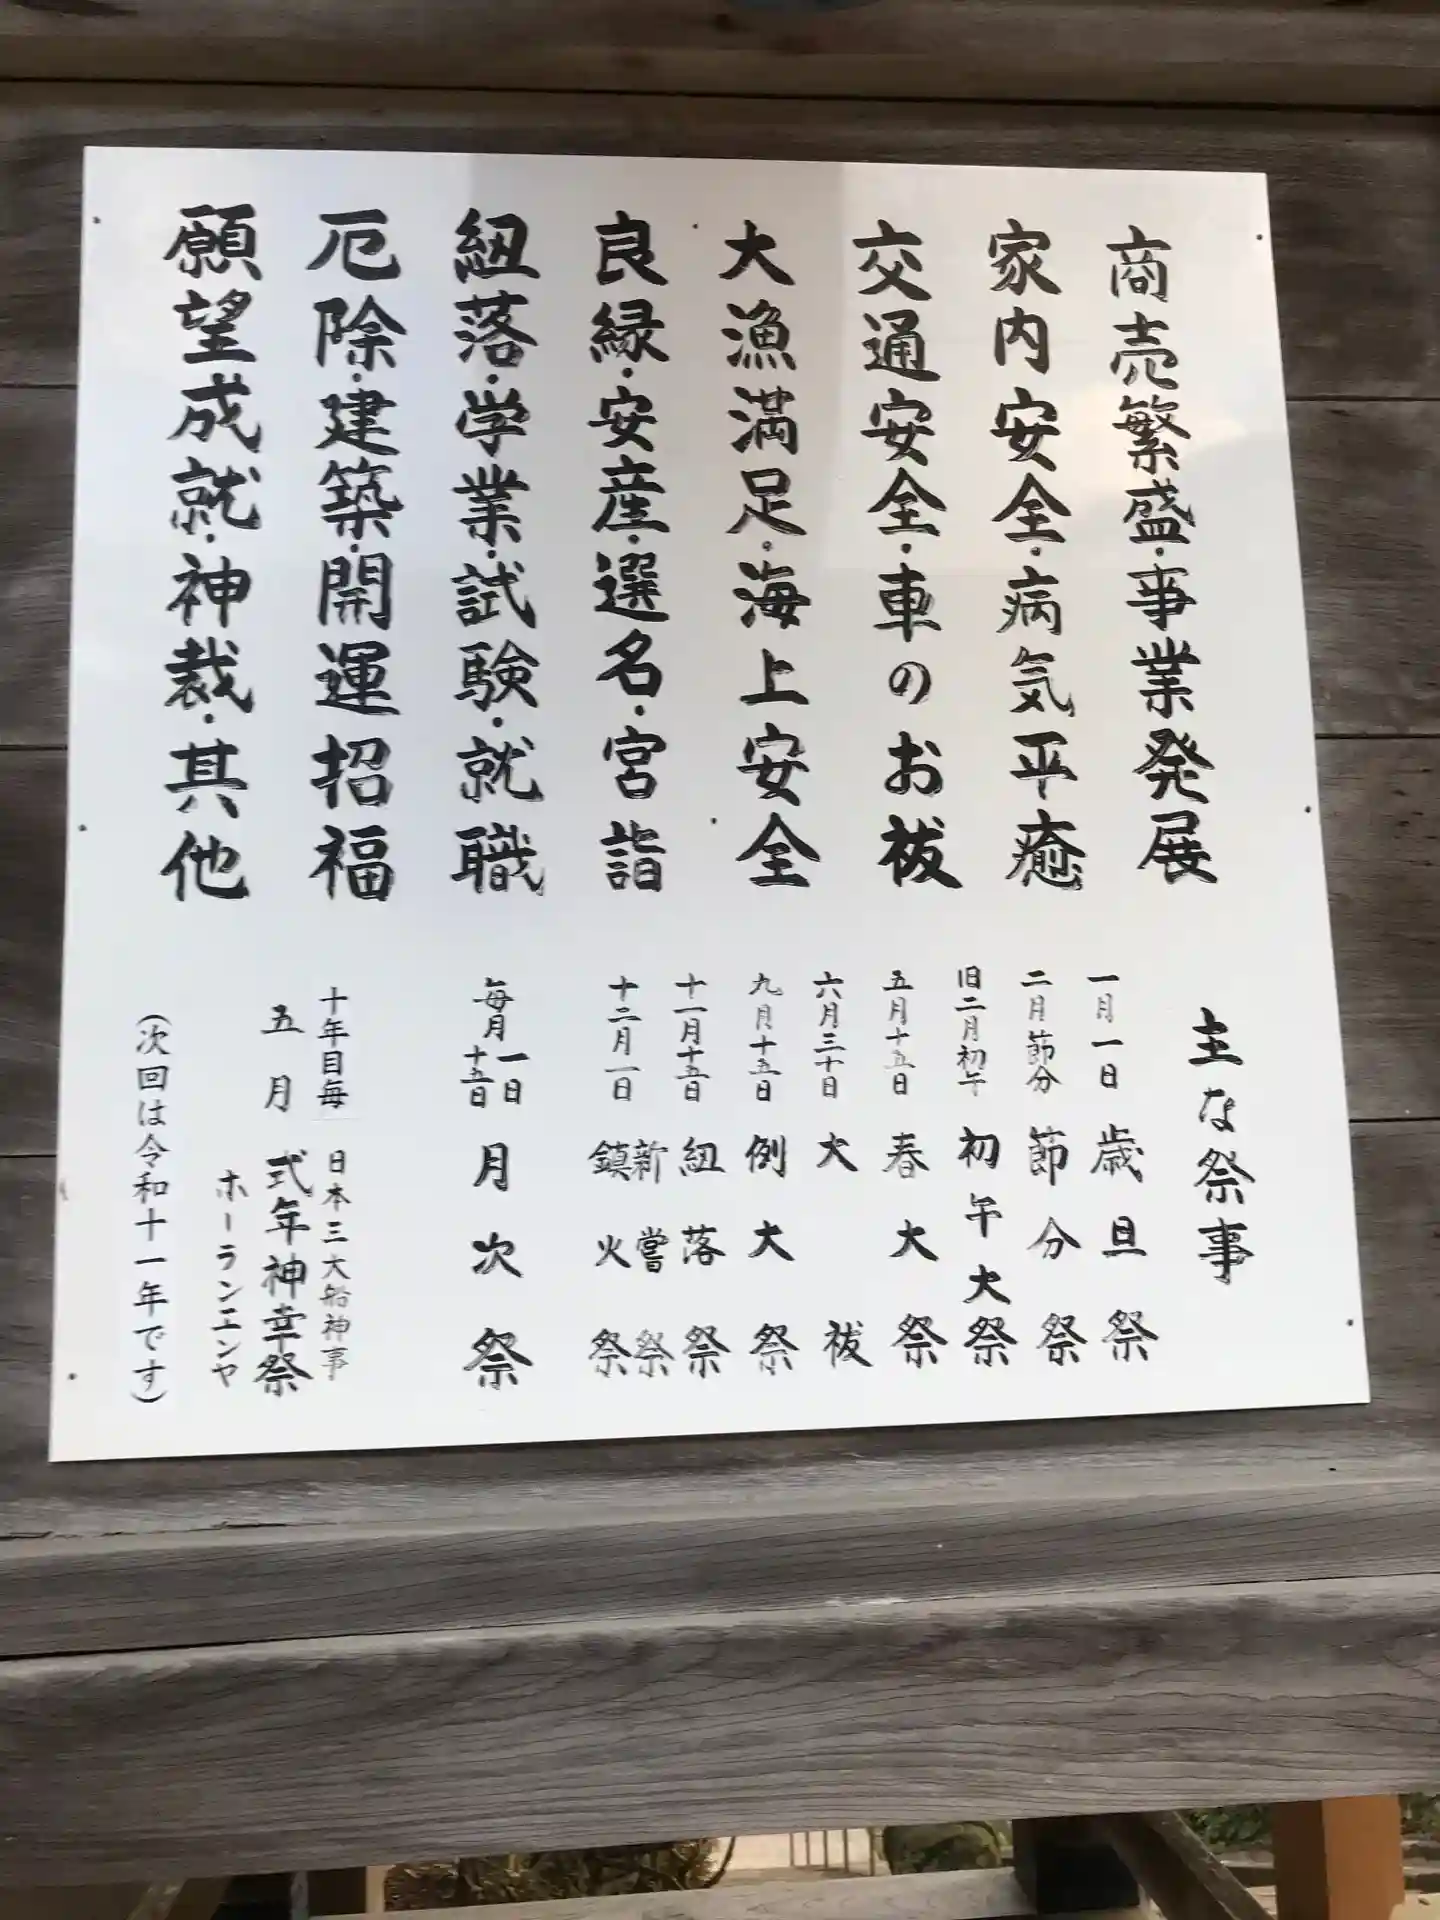 商売繁盛・事業発展
家内安全・病気平癒
交通安全・車のお祓
大漁満足・海上安全
良縁・安産・選名・宮詣
紐落・学業・試験・就職
厄除・建築・開運招福
願望成就・神裁・其他
主な祭事
一月一日 歳旦祭
二月節分 節分祭
旧二月初午 初午大祭
五月十五日 春大祭
六月三十日 大祓
九月十五日 例大祭
十一月十五日 紐落祭
新嘗祭
十二月一日 鎮火祭
毎月一日十五日 月次祭
十年目毎 日本三大船神事
五月 式年神幸祭
ホーランエンヤ
(次回は令和十一年です)